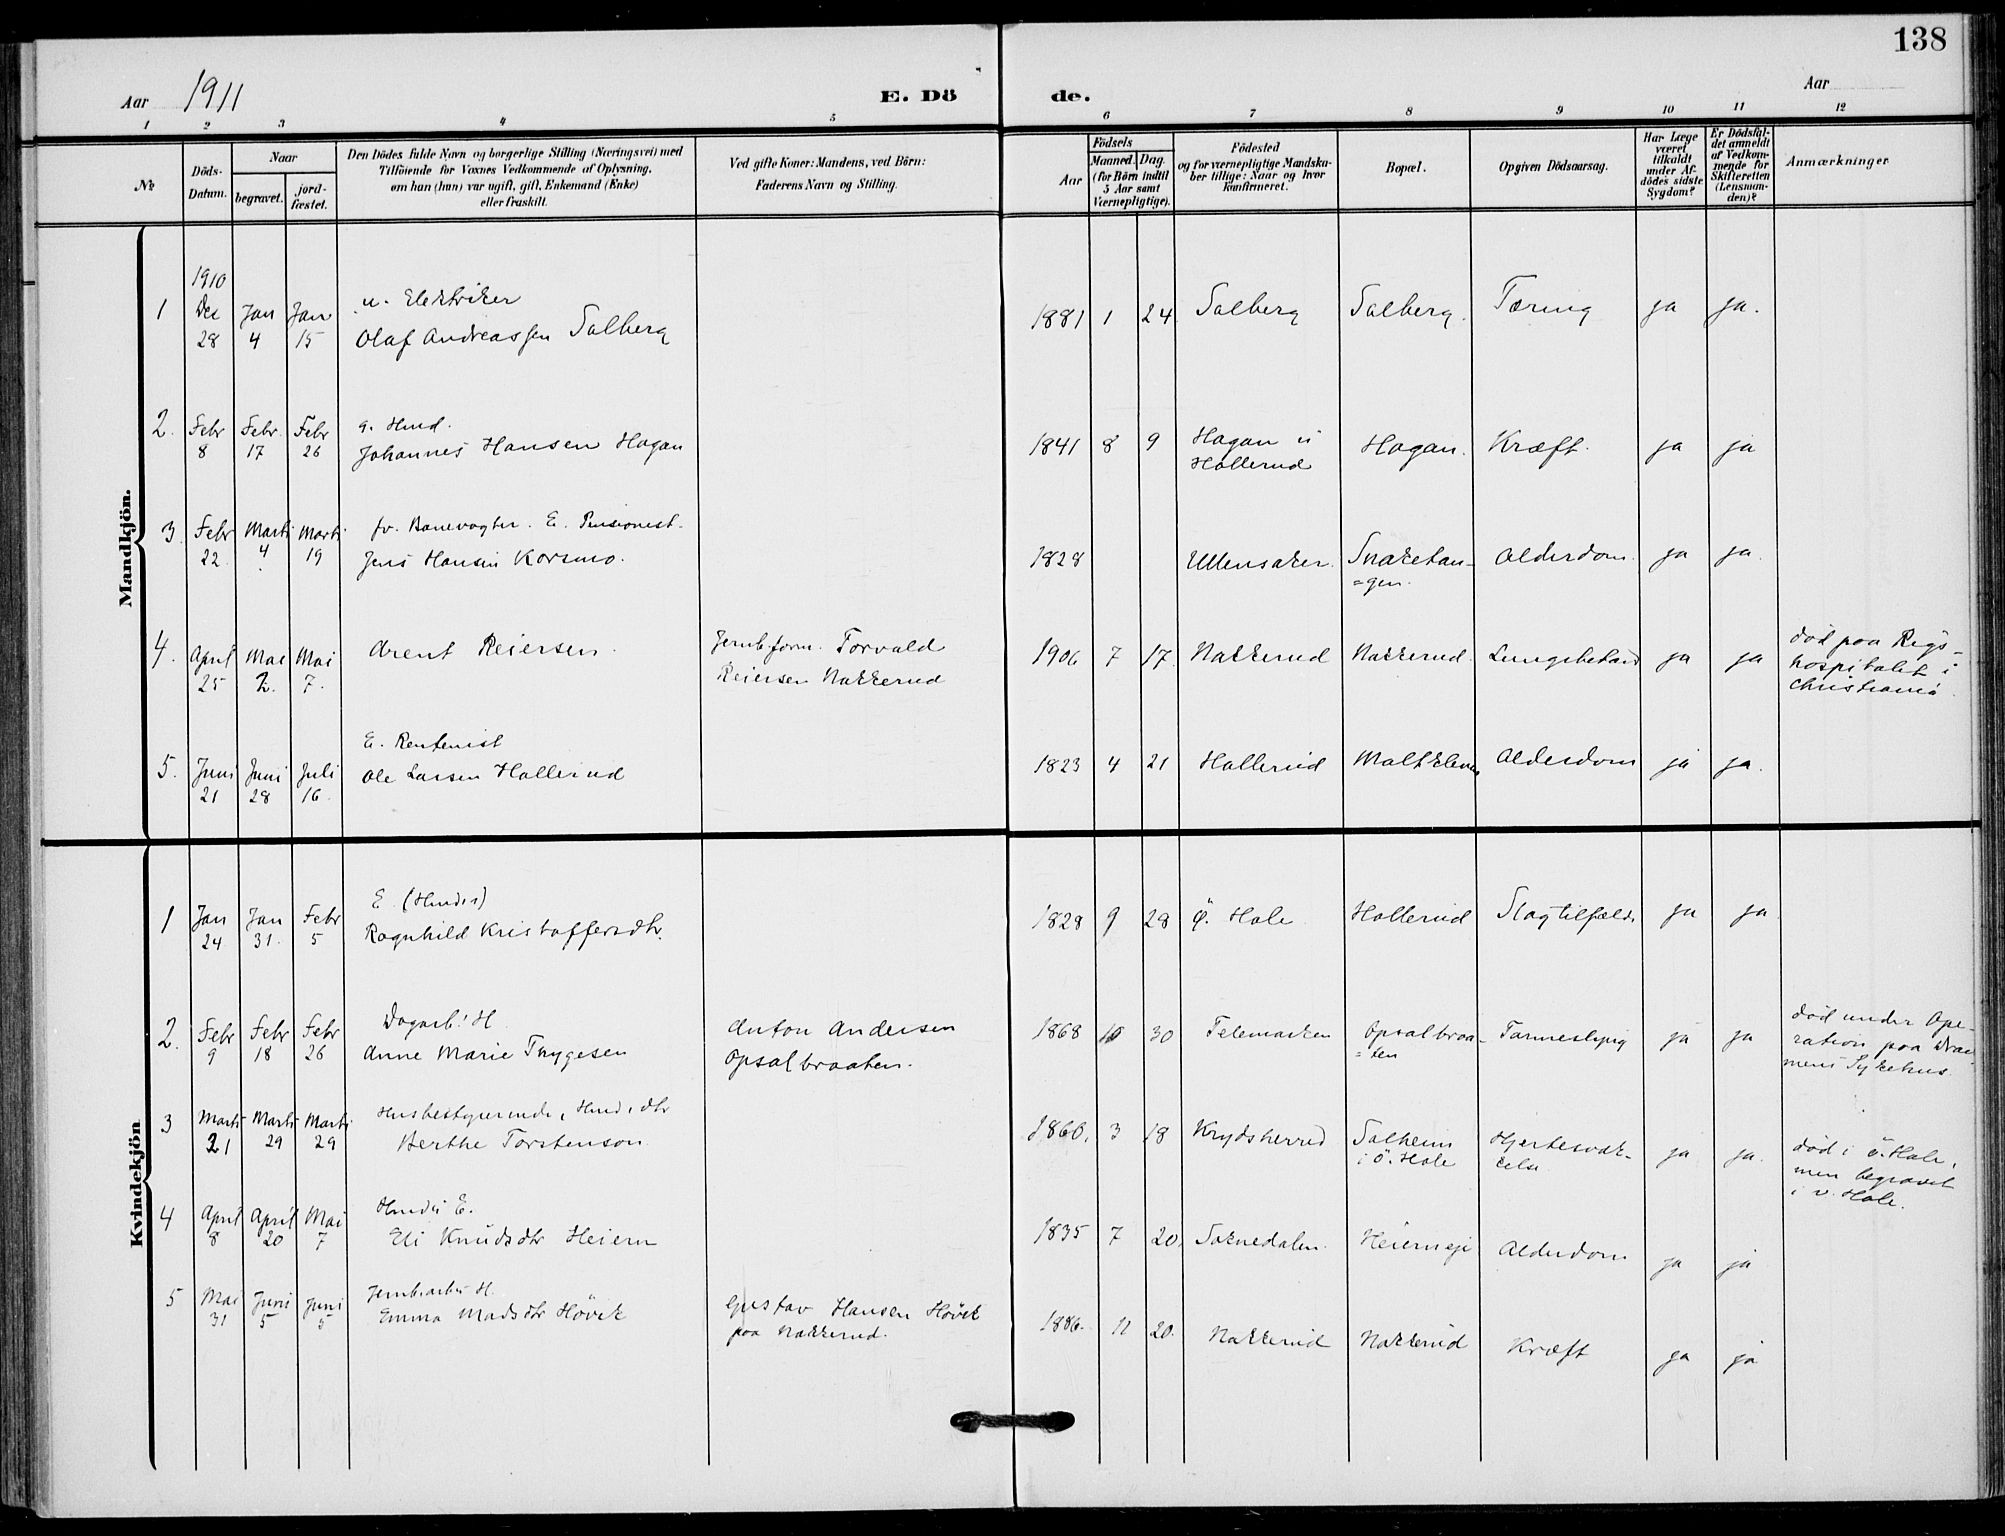 138
Aar 1911
E. Dö
de.
Aar
1 2 3 4 5 6 7 8 9 10 11 12
№
Döds-
Datum.
Naar
begravet.
jord-
fæstet.
Den Dödes fulde Navn og borgerlige Stilling (Næringsvei) med
Tilföiende for Voxnes Vedkommende af Oplysning,
om han (hun) var ugift, gift, Enkemand (Enke)
eller fraskilt.
Ved gifte Koner: Mandens, ved Börn:
Faderens Navn og Stilling.
Födsels
Aar
Maaned. Dag.
(for Börn indtil
5 Aar samt
Værnepligtige).
Födested
og for værnepligtige Mandska-
ber tillige: Naar og hvor
konfirmeret.
Bopæl.
Opgiven Dödsaarsag.
Har Læge
været
tilkaldt
under Af-
dödes sidste
Sygdom?
Er Dödsfal-
det anmeldt
af Vedkom-
mende for
Skifteretten
(Lensman-
den)?
Anmærkninger
Mandkjön.
1910
1 Dec 28 Jan 4 Jan 15
u. Elektriker
Olaf Andreassen Solberg
1881 1 24 Solberg Solberg. Tæring ja ja.
2. Febr 8 Febr 17 Febr 26
g. Hmd.
Johannes Hansen Hagan
1841 8 9 Hagan i
Hollerud
Hagan. Kræft. ja ja
3 Febr 22 Marts 4 Marts 19
fv. Banevogter. E. Pensionist.
Jens Hansen Korsmo.
1828 Ullensaker. Snaketan-
=gen.
Alderdom. ja ja.
4. April 25 Mai 2. Mai 7.
Arent Reiersen.
Jernb.form. Torvald
Reiersen Nakkerud
1906 7 17 Nakkerud Nakkerud. ja ja
död paa Rigs-
hospitalet i
Christiania
5. Juni 21 Juni 28 Juli 16.
E. Rentenist
Ole Larsen Hollerud
1823 4 21 Hollerud Alderdom ja ja.
Kvindekjön
1 Jan 24 Jan 31. Febr 5
E. (Hmds)
Ragnhild Kristoffersdtr.
1828 9 28 Ö. Hole Hollerud Slagtilfælde ja ja
2. Febr 9 Febr 18 Febr 26
Dagarb. H
Anne Marie Thygesen
Anton Andersen
Opsalbraaten.
1868 10 30 Telemarken Opsalbraa-
=ten
Tarmeslyng ja ja
död under Ope-
ration paa Dram
mens Sykehus
3 Marts 21 Marts 29 Marts 29
Husbestyrerinde, Hmd. dtr
Berthe Torstenson
1860. 3 18 Krydsherred Solheim
i Ö. Hole
Hjertesvæk-
kelse
ja ja.
död i Ö. Hole,
men begravet
i v. Hole.
4 April 8 April 20 Mai 7
Hmds E.
Eli Knudsdtr Heiern
1835 7 20. Soknedalen. Heierneje Alderdom ja ja
5 Mai 31 Juni 5 Juni 5
Jernb.arb. H.
Emma Madsdtr Hövik
Gustav Hansen Hövik
paa Nakkerud.
1886. 11 20. Nakkerud Nakkerud Kræft ja ja